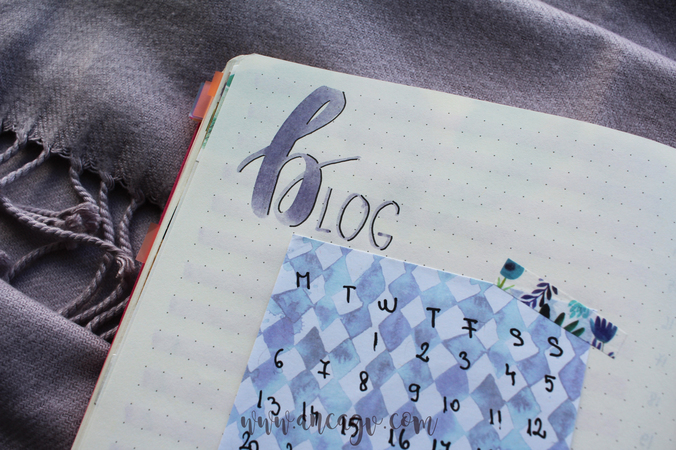 bLOG
M T W T F S S
1 2 3 4 5
6 7 8 9 10 11 12
13 14 15 16
20
www.ancagv.com